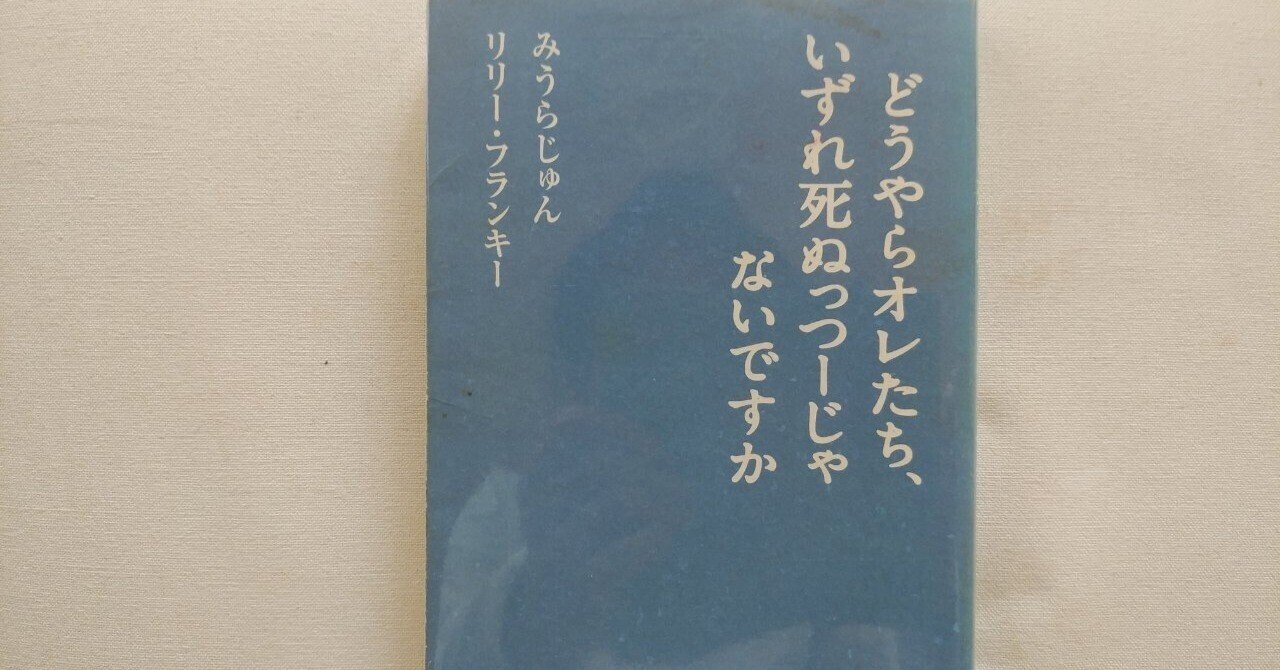 どうやらオレたち、
いずれ死ぬっつーじゃ
ないですか
みうらじゅん
リリー・フランキー